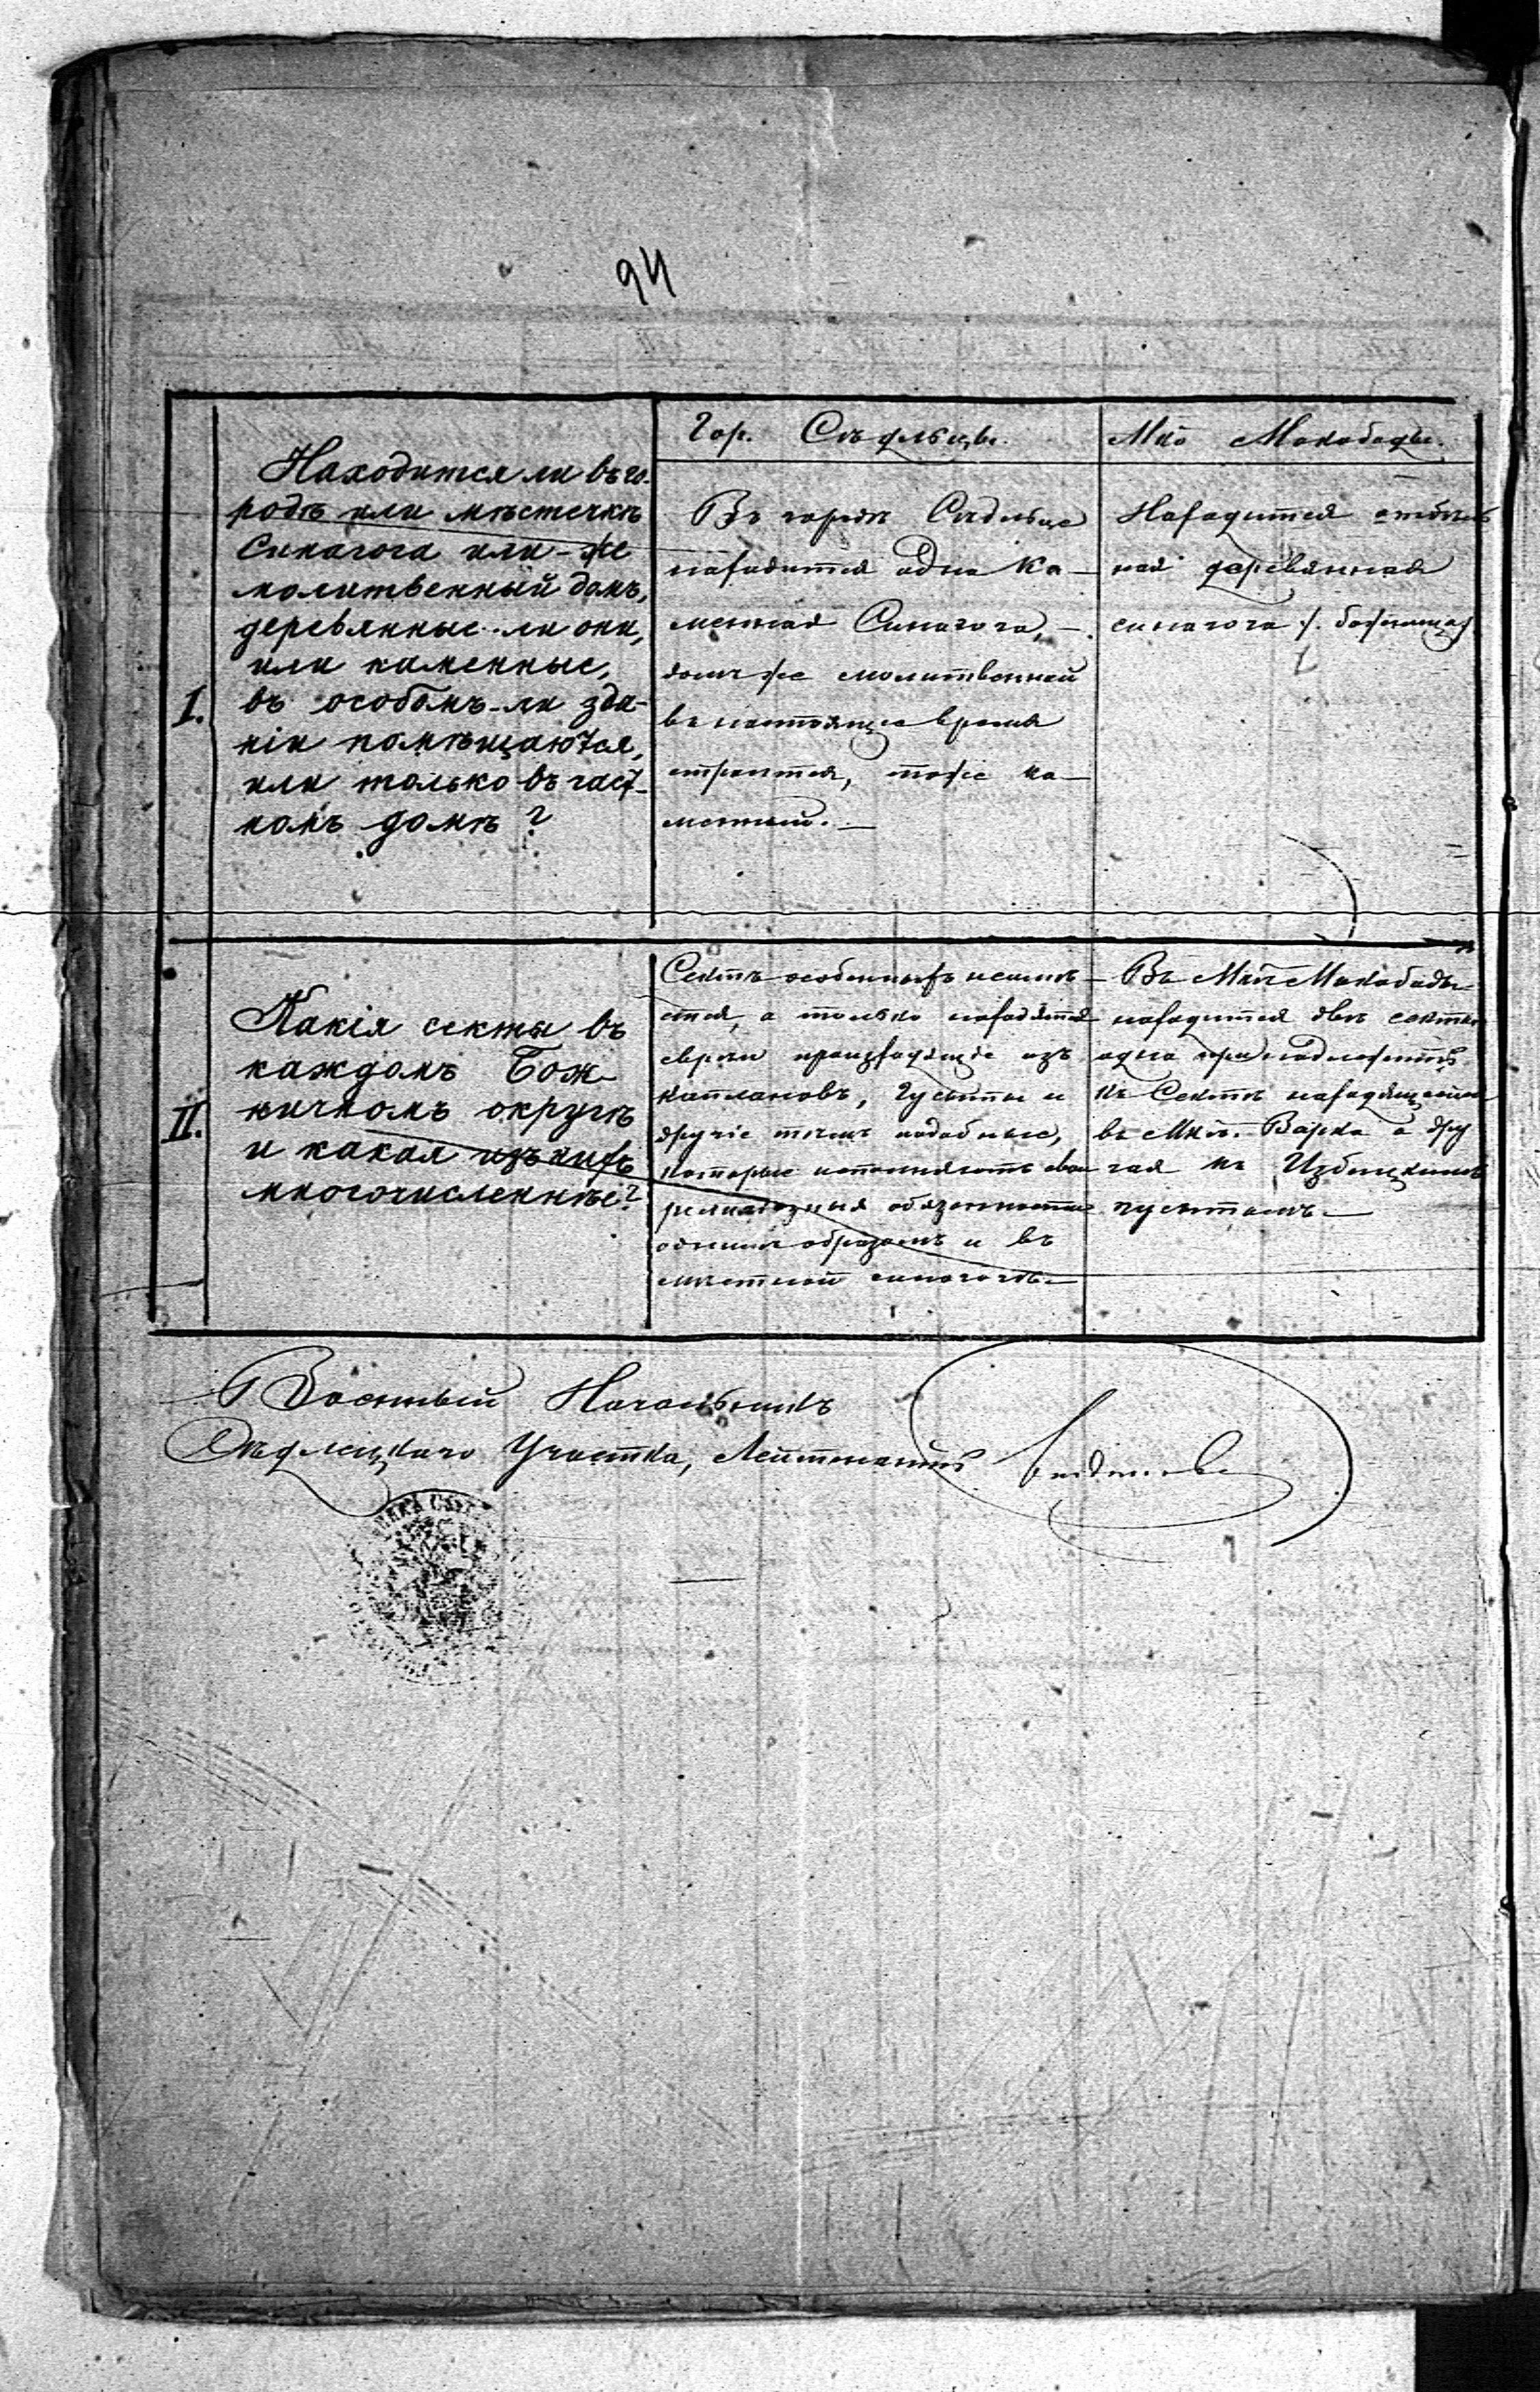 94
I.
Находится ли въ го-
родѣ или мѣстечкѣ
Синагога или-же
молитвенный домъ,
деревянные-ли они,
или каменные,
въ особомъ-ли зда-
ніи помѣщаются,
или только въ част-
номъ домѣ?
Гор. Сѣдльцы.
Въ городѣ Сѣдльце
находится одна ка-
менная Синагога,
домъ же молитвенный
въ настоящее время
строится, тоже ка-
менный.
Мко Мокободы.
Находится отдѣль
ная деревянная
синагога /. божница /.
II.
Какія секты въ
каждомъ Бож-
ничномъ округѣ
и какая изъ нихъ
многочисленнѣе?
Сектъ особенныхъ неимѣ-
ется, а только находятся
евреи произходящіе изъ
каплановъ, Гуситы и
другіе тѣмъ подобные,
которые исполняютъ свои
религіозныя обязанности
однимъ образомъ и въ
мѣстной синагогѣ.
Въ Мкѣ Мокободы
находится двѣ секты
одна принадлежитъ
къ Сектѣ находящейся
въ Мкѣ. Варка а дру
гая къ Избицкимъ
гуситамъ.
Военный Начальникъ
Сѣдлецкаго Участка, Лейтенантъ